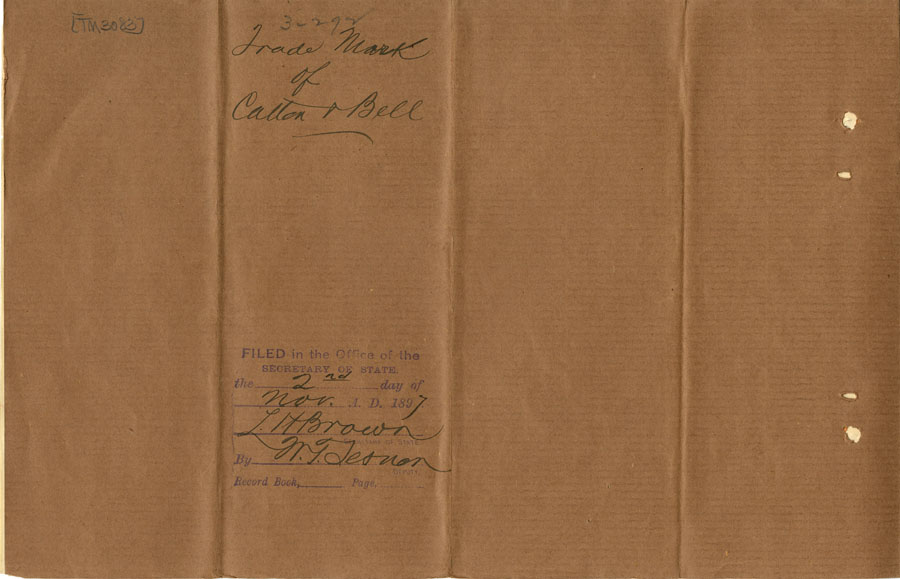 [TM3083]
3-292
Trade Mark
of
Catton & Bell
FILED in the Office of the
SECRETARY OF STATE.
the 2nd day of
Nov. A. D. 1897
L. H. Brown
Secretary of State
By W. T.
Deputy.
Record Book, Page.